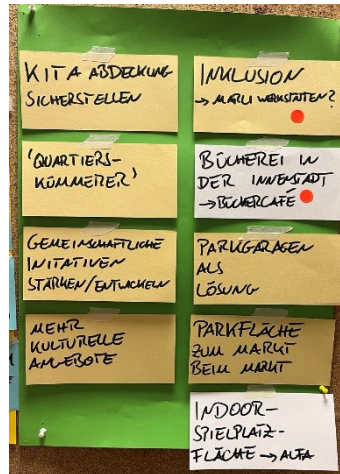 KITA ABDECKUNG
SICHERSTELLEN
'QUARTIERS-
KÜMMERER'
GEMEINSCHAFTLICHE
INITATIVEN
STÄRKEN/ENTWICKELN
MEHR
KULTURELLE
ANGEBOTE
INKLUSION
→ MARLI WERKSTÄTTEN?
BÜCHEREI IN
DER INNENSTADT
→ BÜCHERCAFÉ
PARKGARAGEN
ALS
LÖSUNG
PARKFLÄCHE
ZUM MARKT
BEIM MARKT
INDOOR-
SPIELPLATZ-
FLÄCHE → AUFA